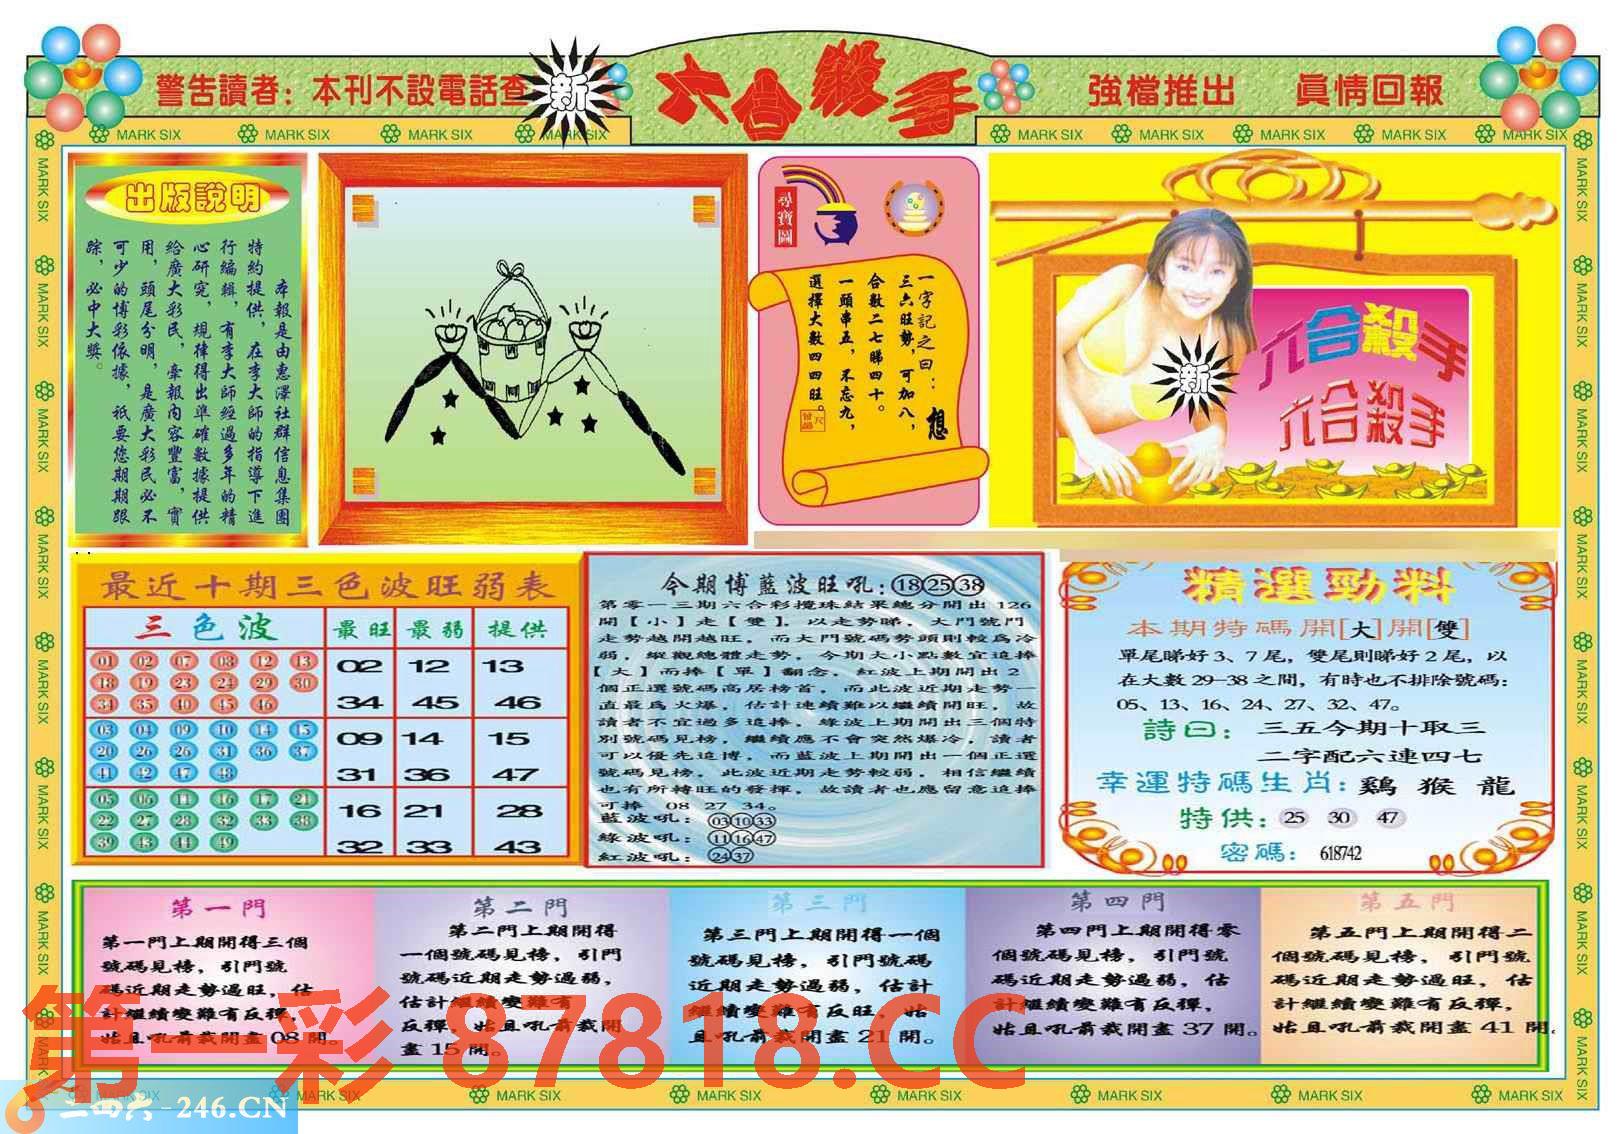 警告讀者：本刊不設電話查
新
六合殺手
強檔推出 眞情回報
MARK SIX MARK SIX MARK SIX MARK SIX MARK SIX MARK SIX MARK SIX MARK SIX MARK SIX
出版說明
本報是由惠澤社群信息集團
特約提供，在李大師的指導下進
行編輯，有李大師經過多年的精
心研究，規律得出準確數據提供
給廣大彩民，本報內容豐富，實
用，頭尾分明，是廣大彩民必不
可少的博彩依據，祇要您期期跟
踪，必中大獎。
尋寶圖
一字記之曰：想
三六旺勢，可加八，
合數二七睇四十。
一頭串五，不忘九，
選擇大數四四旺。
新
六合殺手
六合殺手
最近十期三色波旺弱表
三色波 最旺 最弱 提供
01 02 07 08 12 13
18 19 23 24 29 30
34 35 40 45 46
02 12 13
34 45 46
03 04 09 10 14 15
20 26 26 31 36 37
41 42 47 48
09 14 15
31 36 47
05 06 11 16 17 21
22 27 28 32 33 38
39 43 44 49
16 21 28
32 33 43
今期博藍波旺吼：18 25 38
第零一三期六合彩攪珠結果總分開出 126
開【小】走【雙】，以走勢睇，大門號門
走勢越開越旺，而大門號碼勢頭則較爲冷
弱，縱觀總體走勢，今期大小點數宜追捧
【大】而捧【單】翻念，紅波上期開出 2
個正選號碼高居榜首，而此波近期走勢一
直最爲火爆，估計連續難以繼續開旺，故
讀者不宜過多追捧，綠波上期開出三個特
別號碼見榜，繼續應不會突然爆冷，讀者
可以優先追博，而藍波上期開出一個正選
號碼見榜，此波近期走勢較弱，相信繼續
也有所轉旺的發揮，故讀者也應留意追捧
可捧 08 27 34。
藍波吼：03 10 33
綠波吼：11 16 47
紅波吼：24 37
精選勁料
本期特碼開[大]開[雙]
單尾睇好 3、7 尾，雙尾則睇好 2 尾，以
在大數 29-38 之間，有時也不排除號碼：
05、13、16、24、27、32、47。
詩曰：三五今期十取三
二字配六連四七
幸運特碼生肖：鷄 猴 龍
特供：25 30 47
密碼：618742
第一門
第一門上期開得三個
號碼見榜，引門號
碼近期走勢過旺，估
計繼續變難有反彈，
姑且吼前裁開盡 08 開。
第二門
第二門上期開得
一個號碼見榜，引門
號碼近期走勢過弱，
估計繼續變難有
反彈，姑且吼前裁開
盡 15 開。
第三門
第三門上期開得一個
號碼見榜，引門號碼
近期走勢過弱，估計
繼續變難有反旺，姑
且吼前裁開盡 21 開。
第四門
第四門上期開得零
個號碼見榜，引門號
碼近期走勢過弱，估
計繼續變難有反彈，
姑且吼前裁開盡 37 開。
第五門
第五門上期開得二
個號碼見榜，引門號
碼近期走勢過旺，估
計繼續變難有反彈，
姑且吼前裁開盡 41 開。
第一彩 87818.CC
二四六-246.CN
MARK SIX MARK SIX MARK SIX MARK SIX MARK SIX MARK SIX MARK SIX